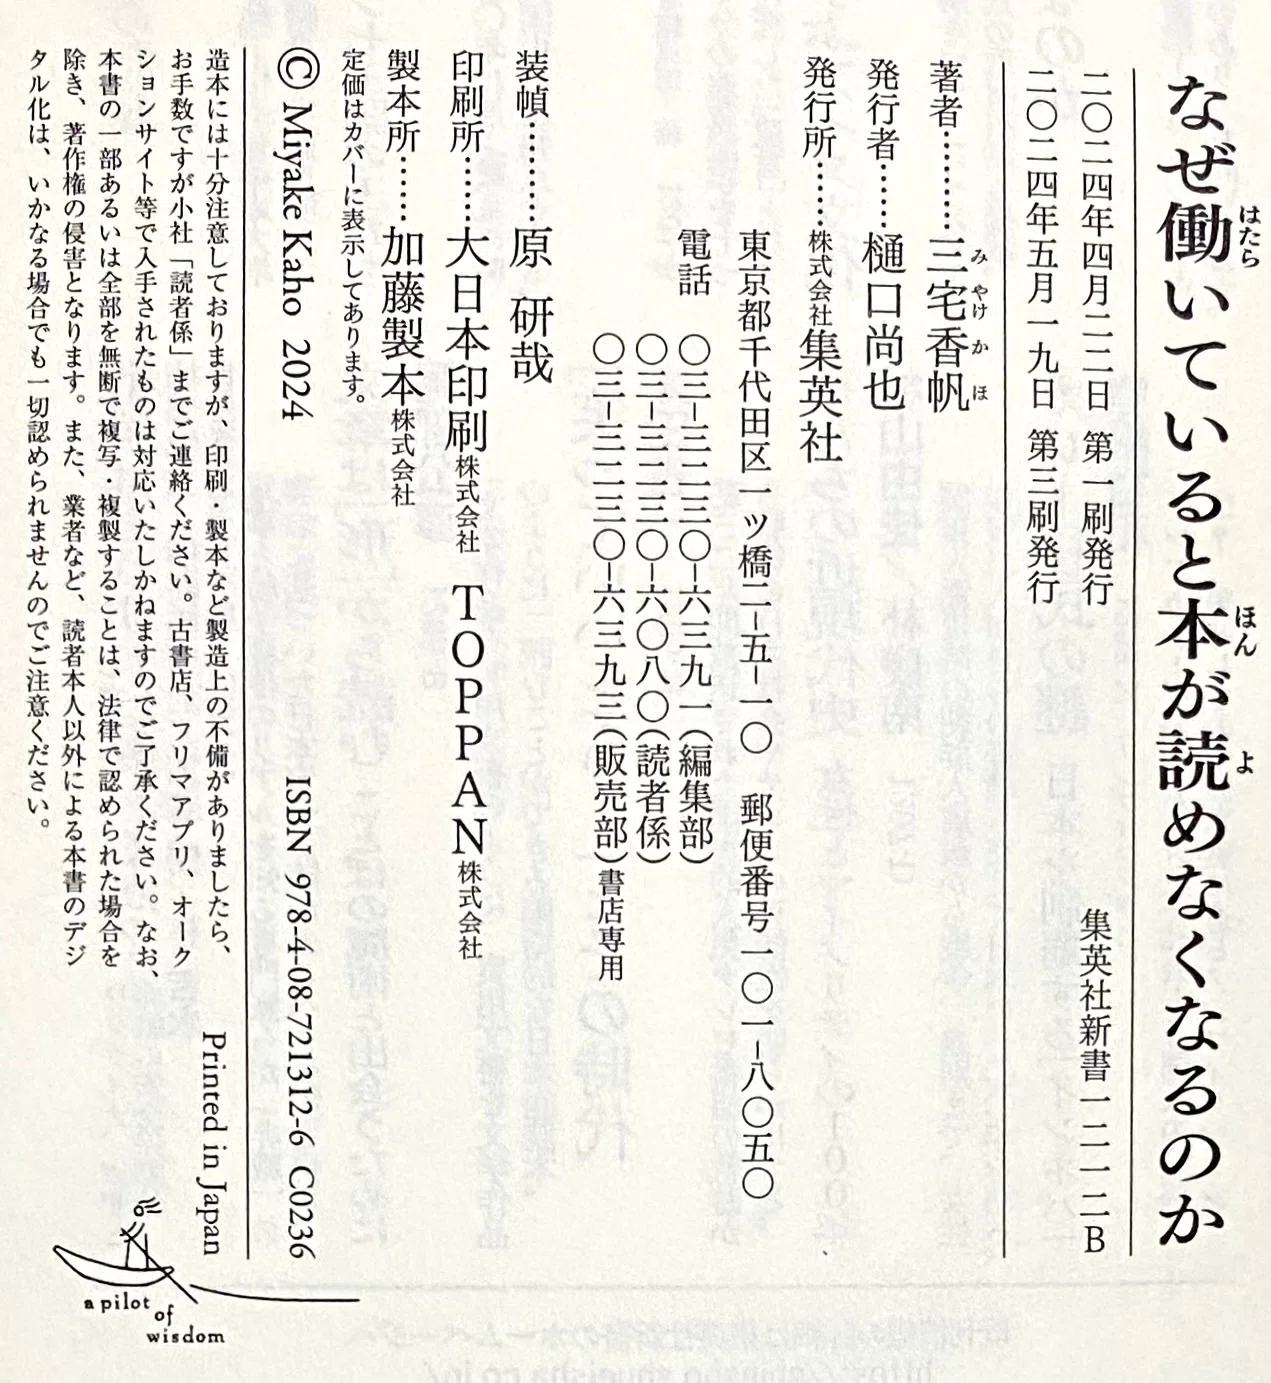 なぜ働いていると本が読めなくなるのか
二〇二四年四月二二日 第一刷発行
集英社新書一二一二B
二〇二四年五月一九日 第三刷発行
著者………三宅香帆
発行者……樋口尚也
発行所……株式会社集英社
東京都千代田区一ツ橋二-五-一〇 郵便番号一〇一-八〇五〇
電話 〇三-三二三〇-六三九一(編集部)
〇三-三二三〇-六〇八〇(読者係)
〇三-三二三〇-六三九三(販売部)書店専用
装幀………原 研哉
印刷所……大日本印刷株式会社 TOPPAN株式会社
製本所……加藤製本株式会社
定価はカバーに表示してあります。
© Miyake Kaho 2024
ISBN 978-4-08-721312-6 C0236
造本には十分注意しておりますが、印刷・製本など製造上の不備がありましたら、
お手数ですが小社「読者係」までご連絡ください。古書店、フリマアプリ、オーク
ションサイト等で入手されたものは対応いたしかねますのでご了承ください。なお、
本書の一部あるいは全部を無断で複写・複製することは、法律で認められた場合を
除き、著作権の侵害となります。また、業者など、読者本人以外による本書のデジ
タル化は、いかなる場合でも一切認められませんのでご注意ください。
Printed in Japan
a pilot
of
wisdom